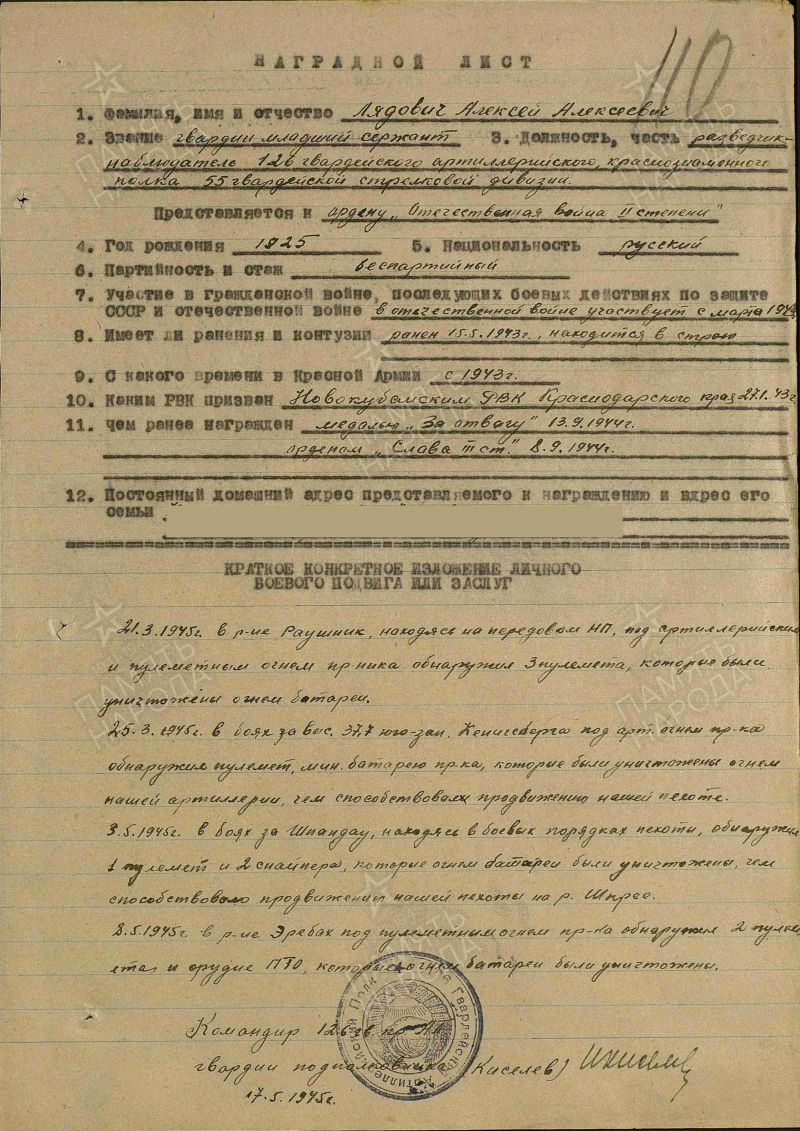 110
НАГРАДНОЙ ЛИСТ
1. Фамилия, имя и отчество Лядович Алексей Алексеевич
2. Звание гвардии младший сержант 3. Должность, часть разведчик-
наблюдатель 126 гвардейского артиллерийского, краснознаменного
полка 55 гвардейской стрелковой дивизии.
Представляется к ордену „Отечественная война II степени"
4. Год рождения 1925 5. Национальность русский
6. Партийность и стаж беспартийный
7. Участие в гражданской войне, последующих боевых действиях по защите
СССР и отечественной войне в отечественной войне участвует с марта
8. Имеет ли ранения и контузии ранен 15.5.1943г., находится в строю
9. С какого времени в Красной Армии с 1943г.
10. Каким РВК призван Новокубанским РВК Краснодарского края 27.1.43г
11. чем ранее награжден медалью „За отвагу" 13.9.1944г.
орденом „Слава III ст." 8.9.1944г.
12. Постоянный домашний адрес представляемого к награждению и адрес его
семьи
КРАТКОЕ КОНКРЕТНОЕ ИЗЛОЖЕНИЕ ЛИЧНОГО
БОЕВОГО ПОДВИГА ИЛИ ЗАСЛУГ
21.3.1945г. в р-не Раушник, находясь на передовом НП, под артиллерийским
и пулеметным огнем пр-ника обнаружил 3 пулемета, которые были
уничтожены огнем батареи.
25.3.1945г. в боях за выс. 37,7 юго-зап. Кенигсберга под арт. огнем пр-ка
обнаружил пулемет, мин. батарею пр-ка, которые были уничтожены огнем
нашей артиллерии, чем способствовал продвижению нашей пехоте.
3.5.1945г. в боях за Шпандау, находясь в боевых порядках пехоты, обнаружил
1 пулемет и 2 снайпера, которые огнем батареи были уничтожены, чем
способствовало продвижению нашей пехоты на р. Шпрее.
8.5.1945г. в р-не Эребах под пулеметным огнем пр-ка обнаружил 2 пулем
ета и орудие ПТО, которые огнем батареи были уничтожены.
Командир 126 гв. кр АП
гвардии подполковник (Киселев)
17.5.1945г.
ПАМЯТЬ НАРОДА